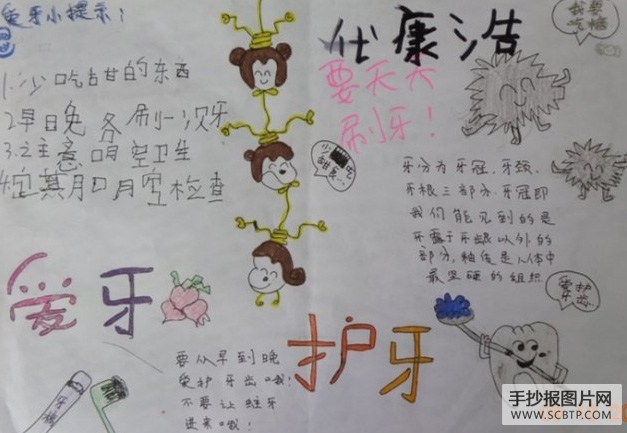 爱牙小提示:
1.少吃甜的东西
2.早晚务刷一次牙
3.注意口空卫生
4.定其月口月空检查
代康浩
要天天
刷牙!
我要
吃糖
牙分为牙冠,牙颈,
牙根三部分.牙冠即
我们能见到的是
牙露于牙龈以外的
部分,釉质是人体中
最坚硬的组织
爱护
牙齿
爱牙
护牙
要从早到晚
爱护牙齿哦!
不要让蛀牙
进来哦!
牙膏
手抄报图片网
WWW.SCBTP.COM